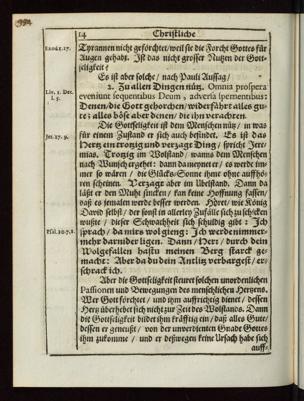 14
Christliche
Exod. 1. 17.
Tyrannen nicht geförchtet/ weil sie die Forcht Gottes für
Augen gehabt. Ist das nicht grosser Nutzen der Gott-
seligkeit?
Es ist aber solche/ nach Pauli Aussag/
2. Zu allen Dingen nütz. Omnia prospera
Liv. 1. Dec.
l. 5.
eveniunt sequentibus Deum, adversa spernentibus:
Denen/ die Gott gehorchen/ widerfährt alles gu-
te: alles böse aber denen/ die ihn verachten.
Die Gottseligkeit ist dem Menschen nütz/ in was
für einem Zustand er sich auch befindet. Es ist das
Jer. 17. 9.
Hertz ein trotzig und verzagt Ding/ spricht Jere-
mias. Trotzig im Wolstand/ wanns dem Menschen
nach Wunsch ergehet: Dann da meynet er/ es werde im-
mer so wären/ die Glücks-Sonne ihme ohne aufhö-
ren scheinen. Verzagt aber im Übelstand. Dann da
läßt er den Muht sincken/ kan keine Hoffnung fassen/
daß es jemalen werde besser werden. Höret/ wie König
David selbst/ der sonst in allerley Zufälle sich zu schicken
wußte/ dieser Schwachheit sich schuldig gibt: Ich
Psal. 30. 7. 8.
sprach/ da mirs wol gieng: Ich werde nimmer-
mehr darnider ligen. Dann/ Herr/ durch dein
Wolgefallen hastu meinen Berg starck ge-
macht: Aber da du dein Antlitz verbargest/ er-
schrack ich.
Aber die Gottseligkeit steuret solchen unordenlichen
Passionen und Bewegungen des menschlichen Hertzens.
Wer Gott förchtet/ und ihm auffrichtig dienet/ dessen
Hertz überhebet sich nicht zur Zeit des Wolstands. Dann
die Gottseligkeit bildet ihm kräfftig ein/ daß alles Gute/
dessen er geneußt/ von der unverdienten Gnade Gottes
ihm zukomme/ und er deßwegen keine Ursach habe sich
auff-